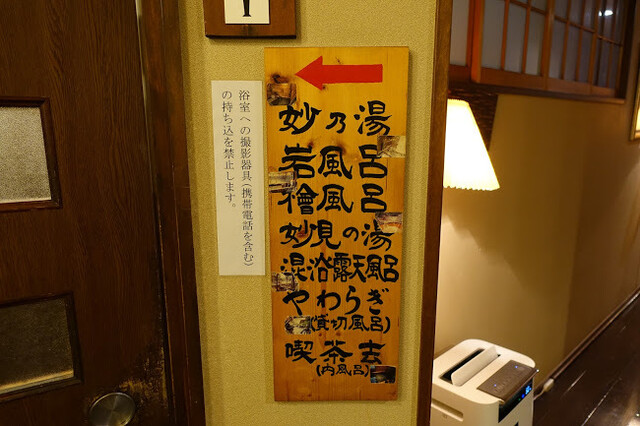 妙乃湯
岩風呂
檜風呂
妙見の湯
混浴露天風呂
やわらぎ
(貸切風呂)
喫茶去
(内風呂)
浴室への撮影器具(携帯電話を含む)
の持ち込を禁止します。